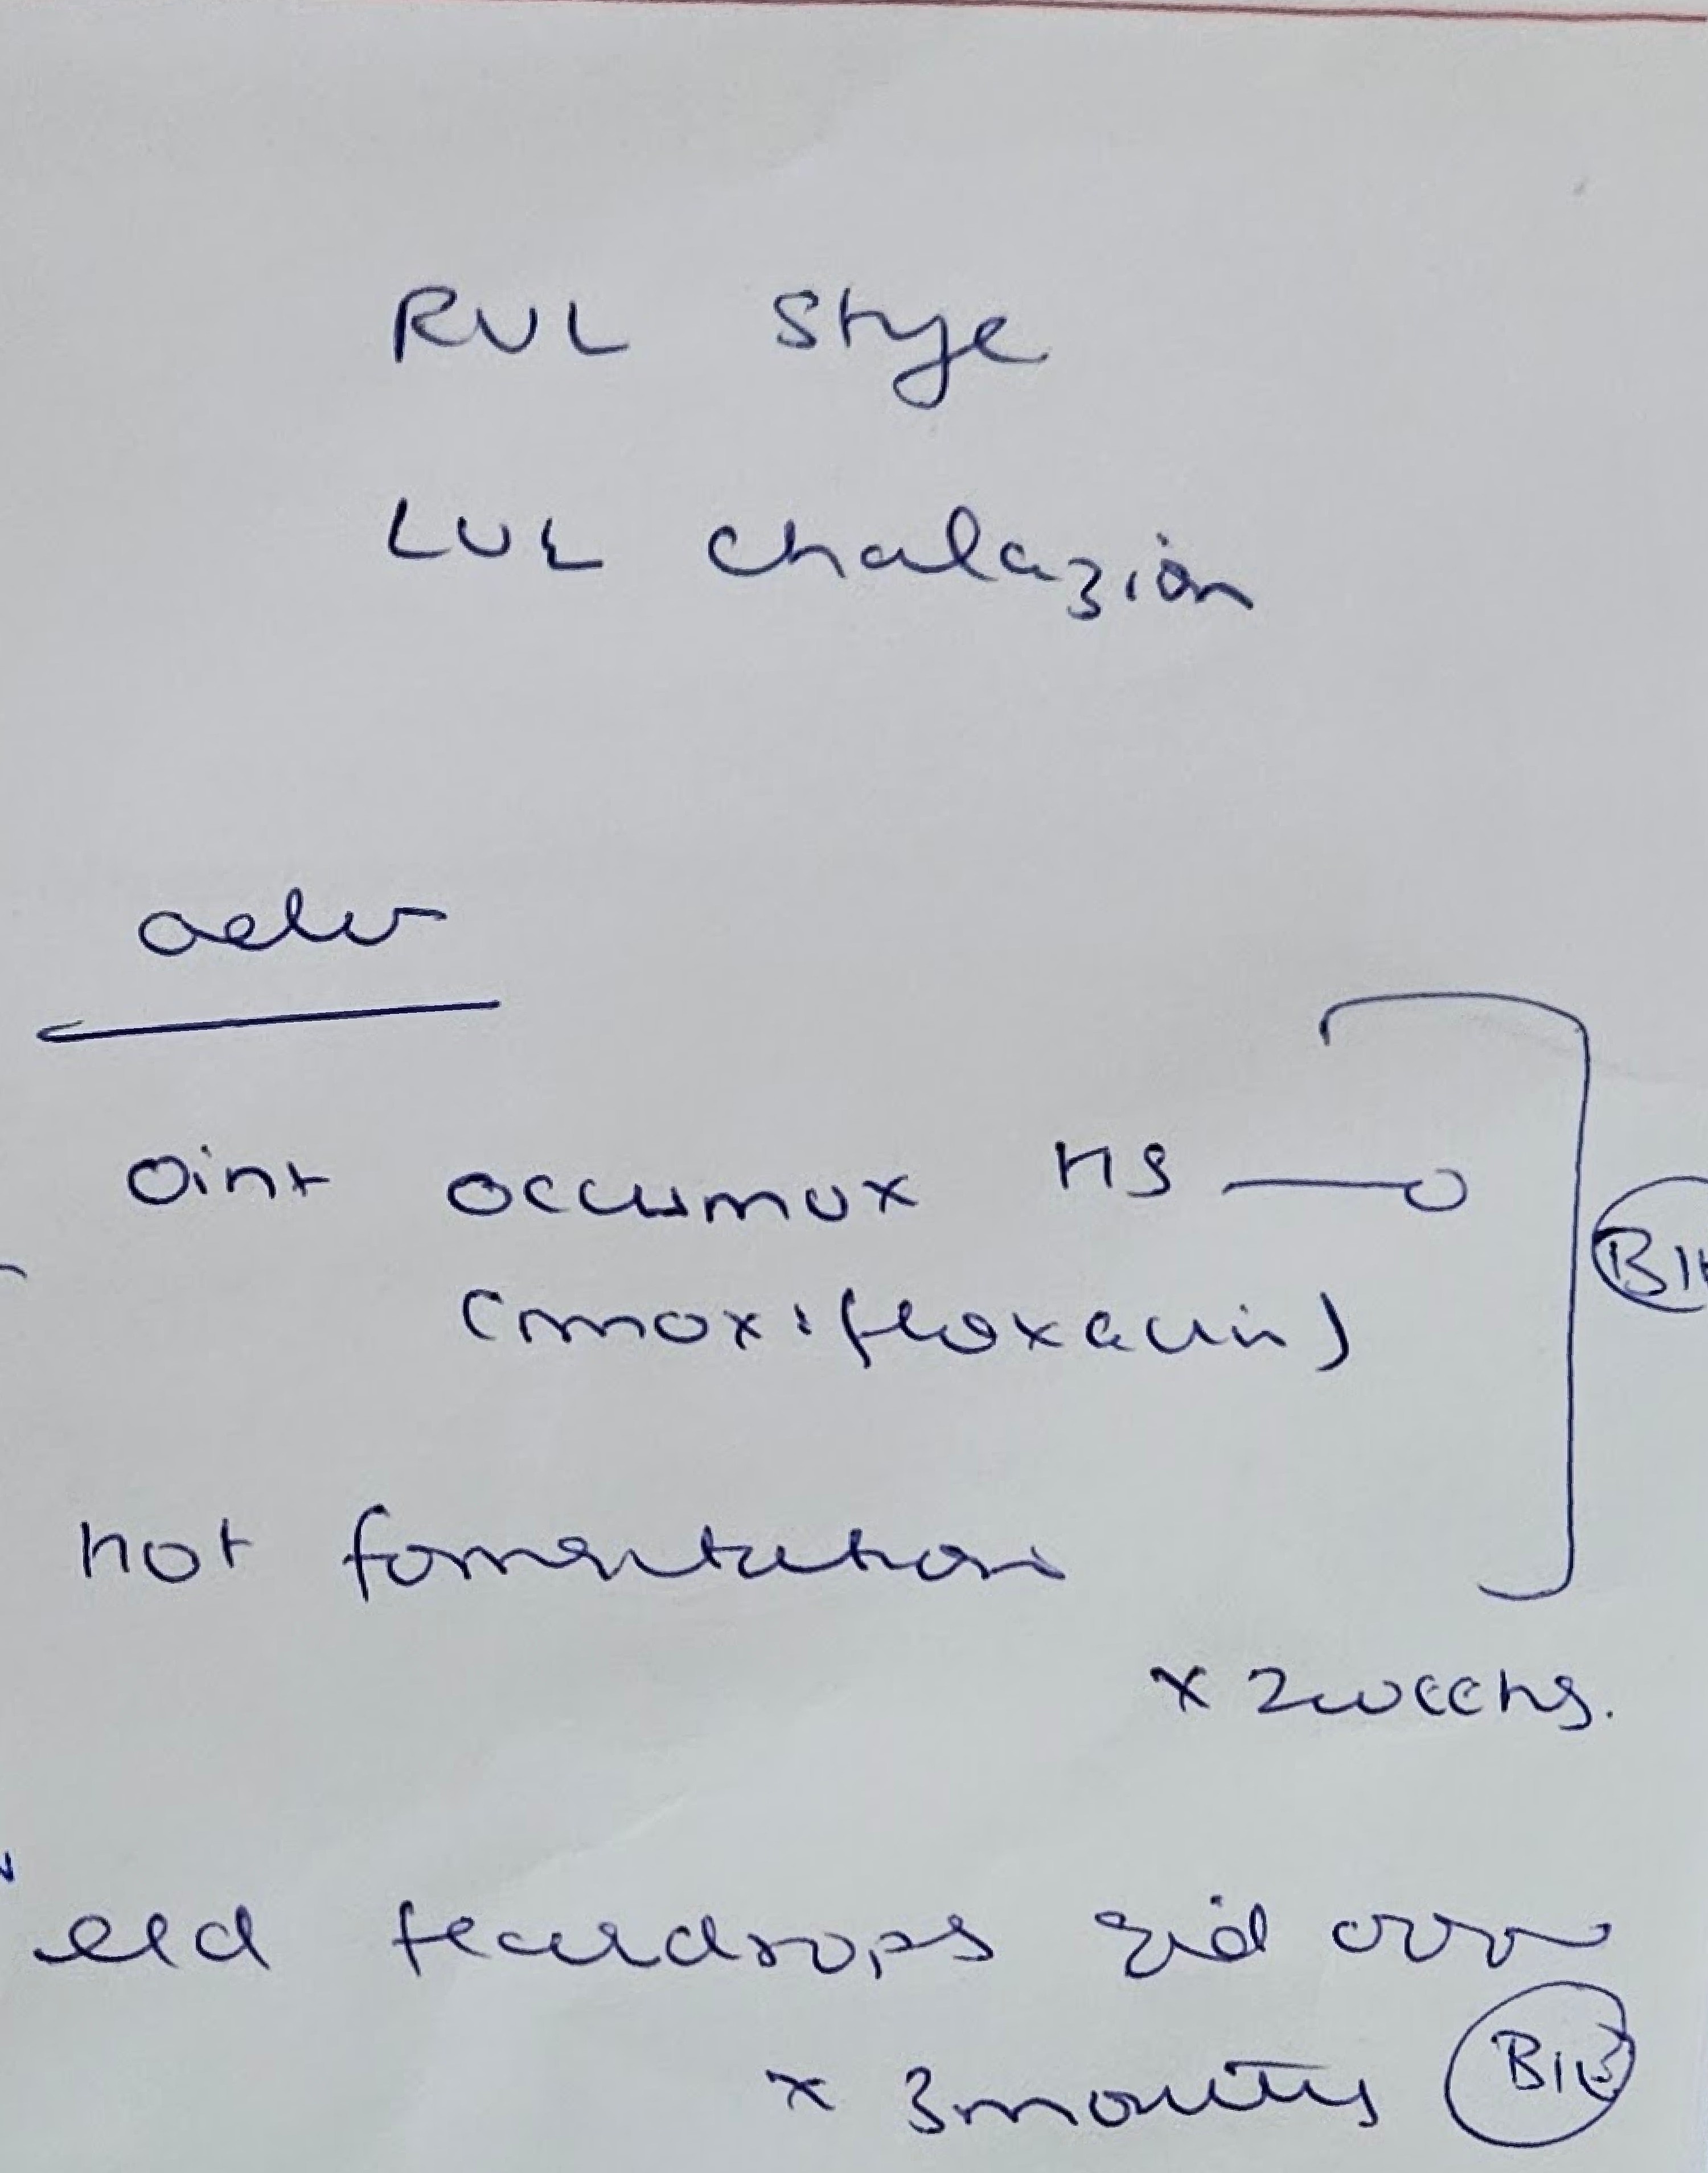 RUL Stye
LUL chalazion
adv
Oint occumox HS
(moxifloxacin)
B/E
hot fomentation
x 2 weeks.
e/d teardrops
x 3 months B/E